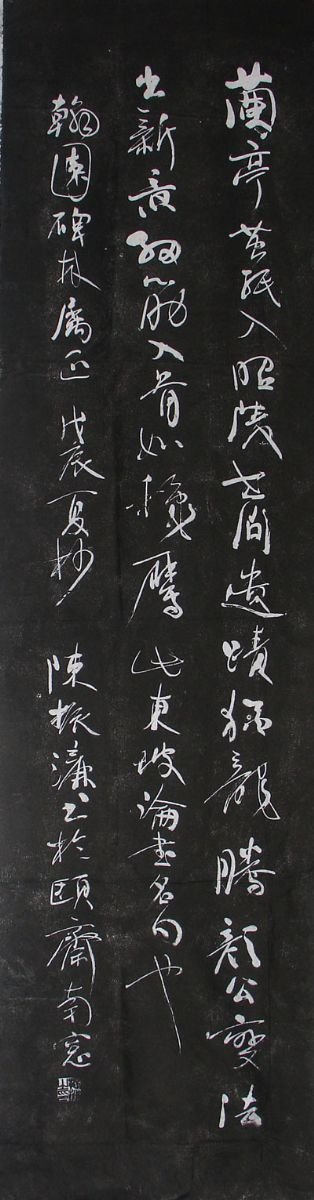 蘭亭茧紙入昭陵世間遺蹟猶龍騰顏公變法
出新意細筋入骨如秋鷹此東坡論書名句也
翰園碑林屬正戊辰夏抄陳振濂書於頤齋南窓